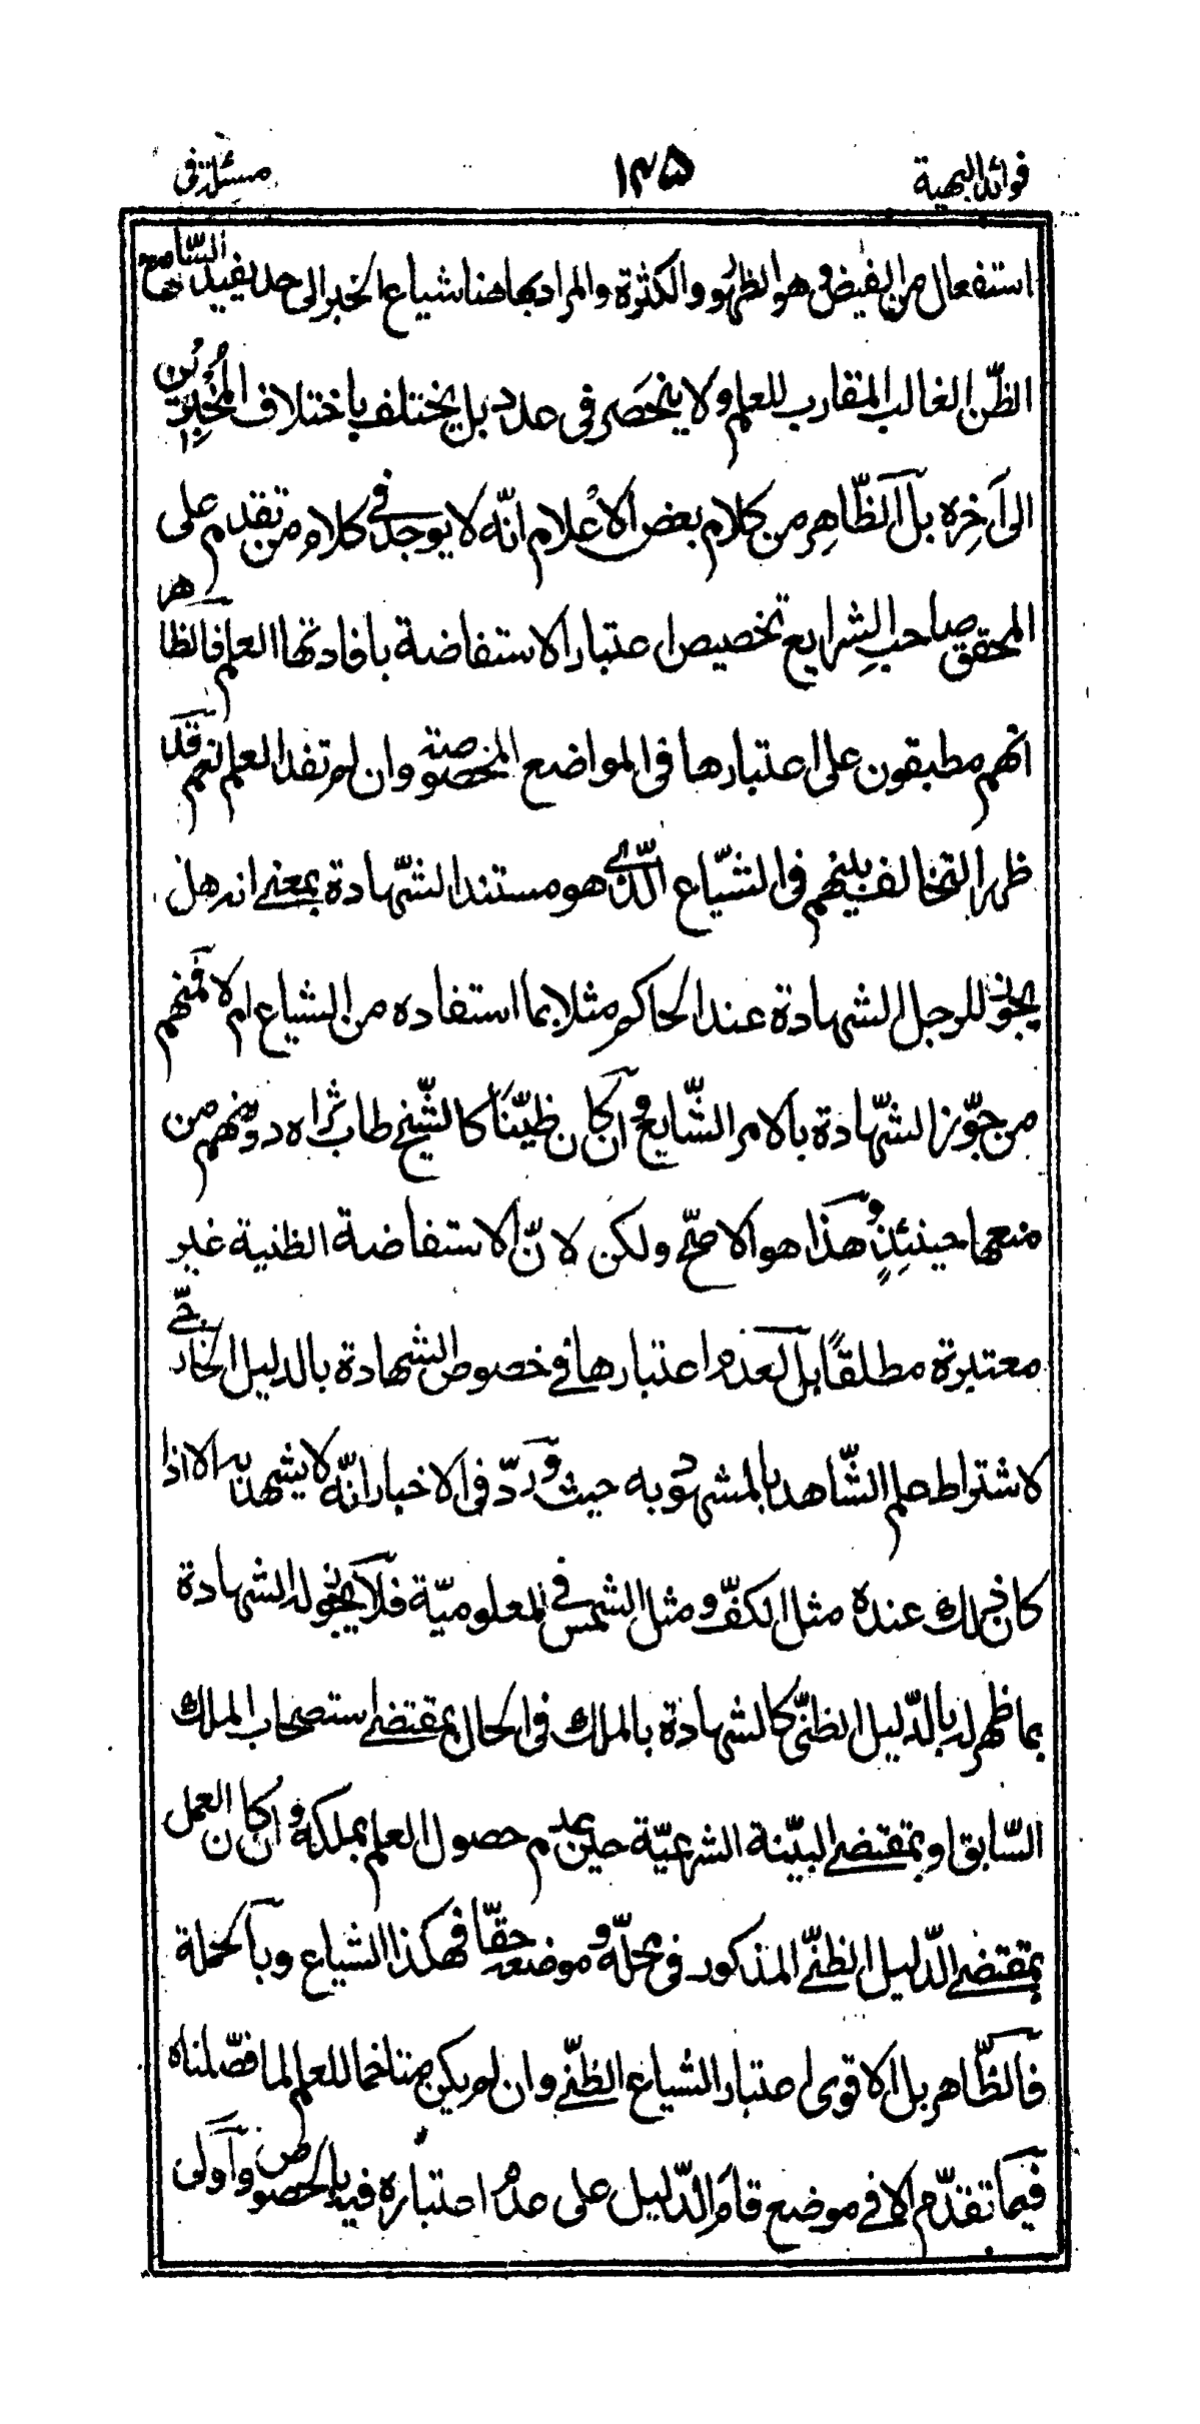 فوائد البهية ١٣٥ مسئلة فى
استفعال من الفيض وهو الظهور والكثرة والمراد بها هنا شياع الخبر الى حد يفيد السّامع
الظّن الغالب المقارب للعلم ولا ينحصر فى عدد بل يختلف باختلاف المُخبِرين
الى آخِره بل الظّاهِر من كلام بعض الاعْلام انّه لا يوجد فى كلام من تقدم على
المحقق صاحب الشرايع تخصيص اعتبار الاستفاضة بافادتها العلم فالظاهر
انهم مطبقون على اعتبارها فى المواضع المخصوصة وان لم تفد العلم نعم قد
ظهر التخالف بينهم فى الشّياع الّذى هو مستند الشّهادة بمعنى انه هل
يجوز للرجل الشهادة عند الحاكم مثلا بما استفاده من الشياع ام لا فمنهم
من جوّز الشّهادة بالامر الشّايع وان كان ظنّيّا كالشّيخ طاب ثراه ومنهم من
منعها حينئذٍ وهذا هو الاصحّ ولكن لا لانّ الاستفاضة الظنية غير
معتبرة مطلقًا بل لعدم اعتبارها فى خصوص الشهادة بالدليل الخارجّى
لاشتراط علم الشّاهد بالمشهود به حيث ورد فى الاخبار انّه لا يشهد به الا اذا
كان ذلك عنده مثل الكفّ ومثل الشمس فى المعلوميّة فلا يجوز له الشهادة
بما ظهر له بالدّليل الظنّى كالشهادة بالملك فى الحال بمقتضى استصحاب الملك
السّابق او بمقتضى البيّنة الشرعيّة حين عدم حصول العلم بملكه وان كان العمل
بمقتضى الدّليل الظنّى المذكور فى محلّه وموضعه حقّا فهكذا الشياع وبالجملة
فالظّاهر بل الاقوى اعتبار الشياع الظنّى وان لم يكن متاخما للعلم لما فصّلناه
فيما تقدّم الا فى موضع قام الدّليل على عدم اعتباره فيه بالخصوص واولى